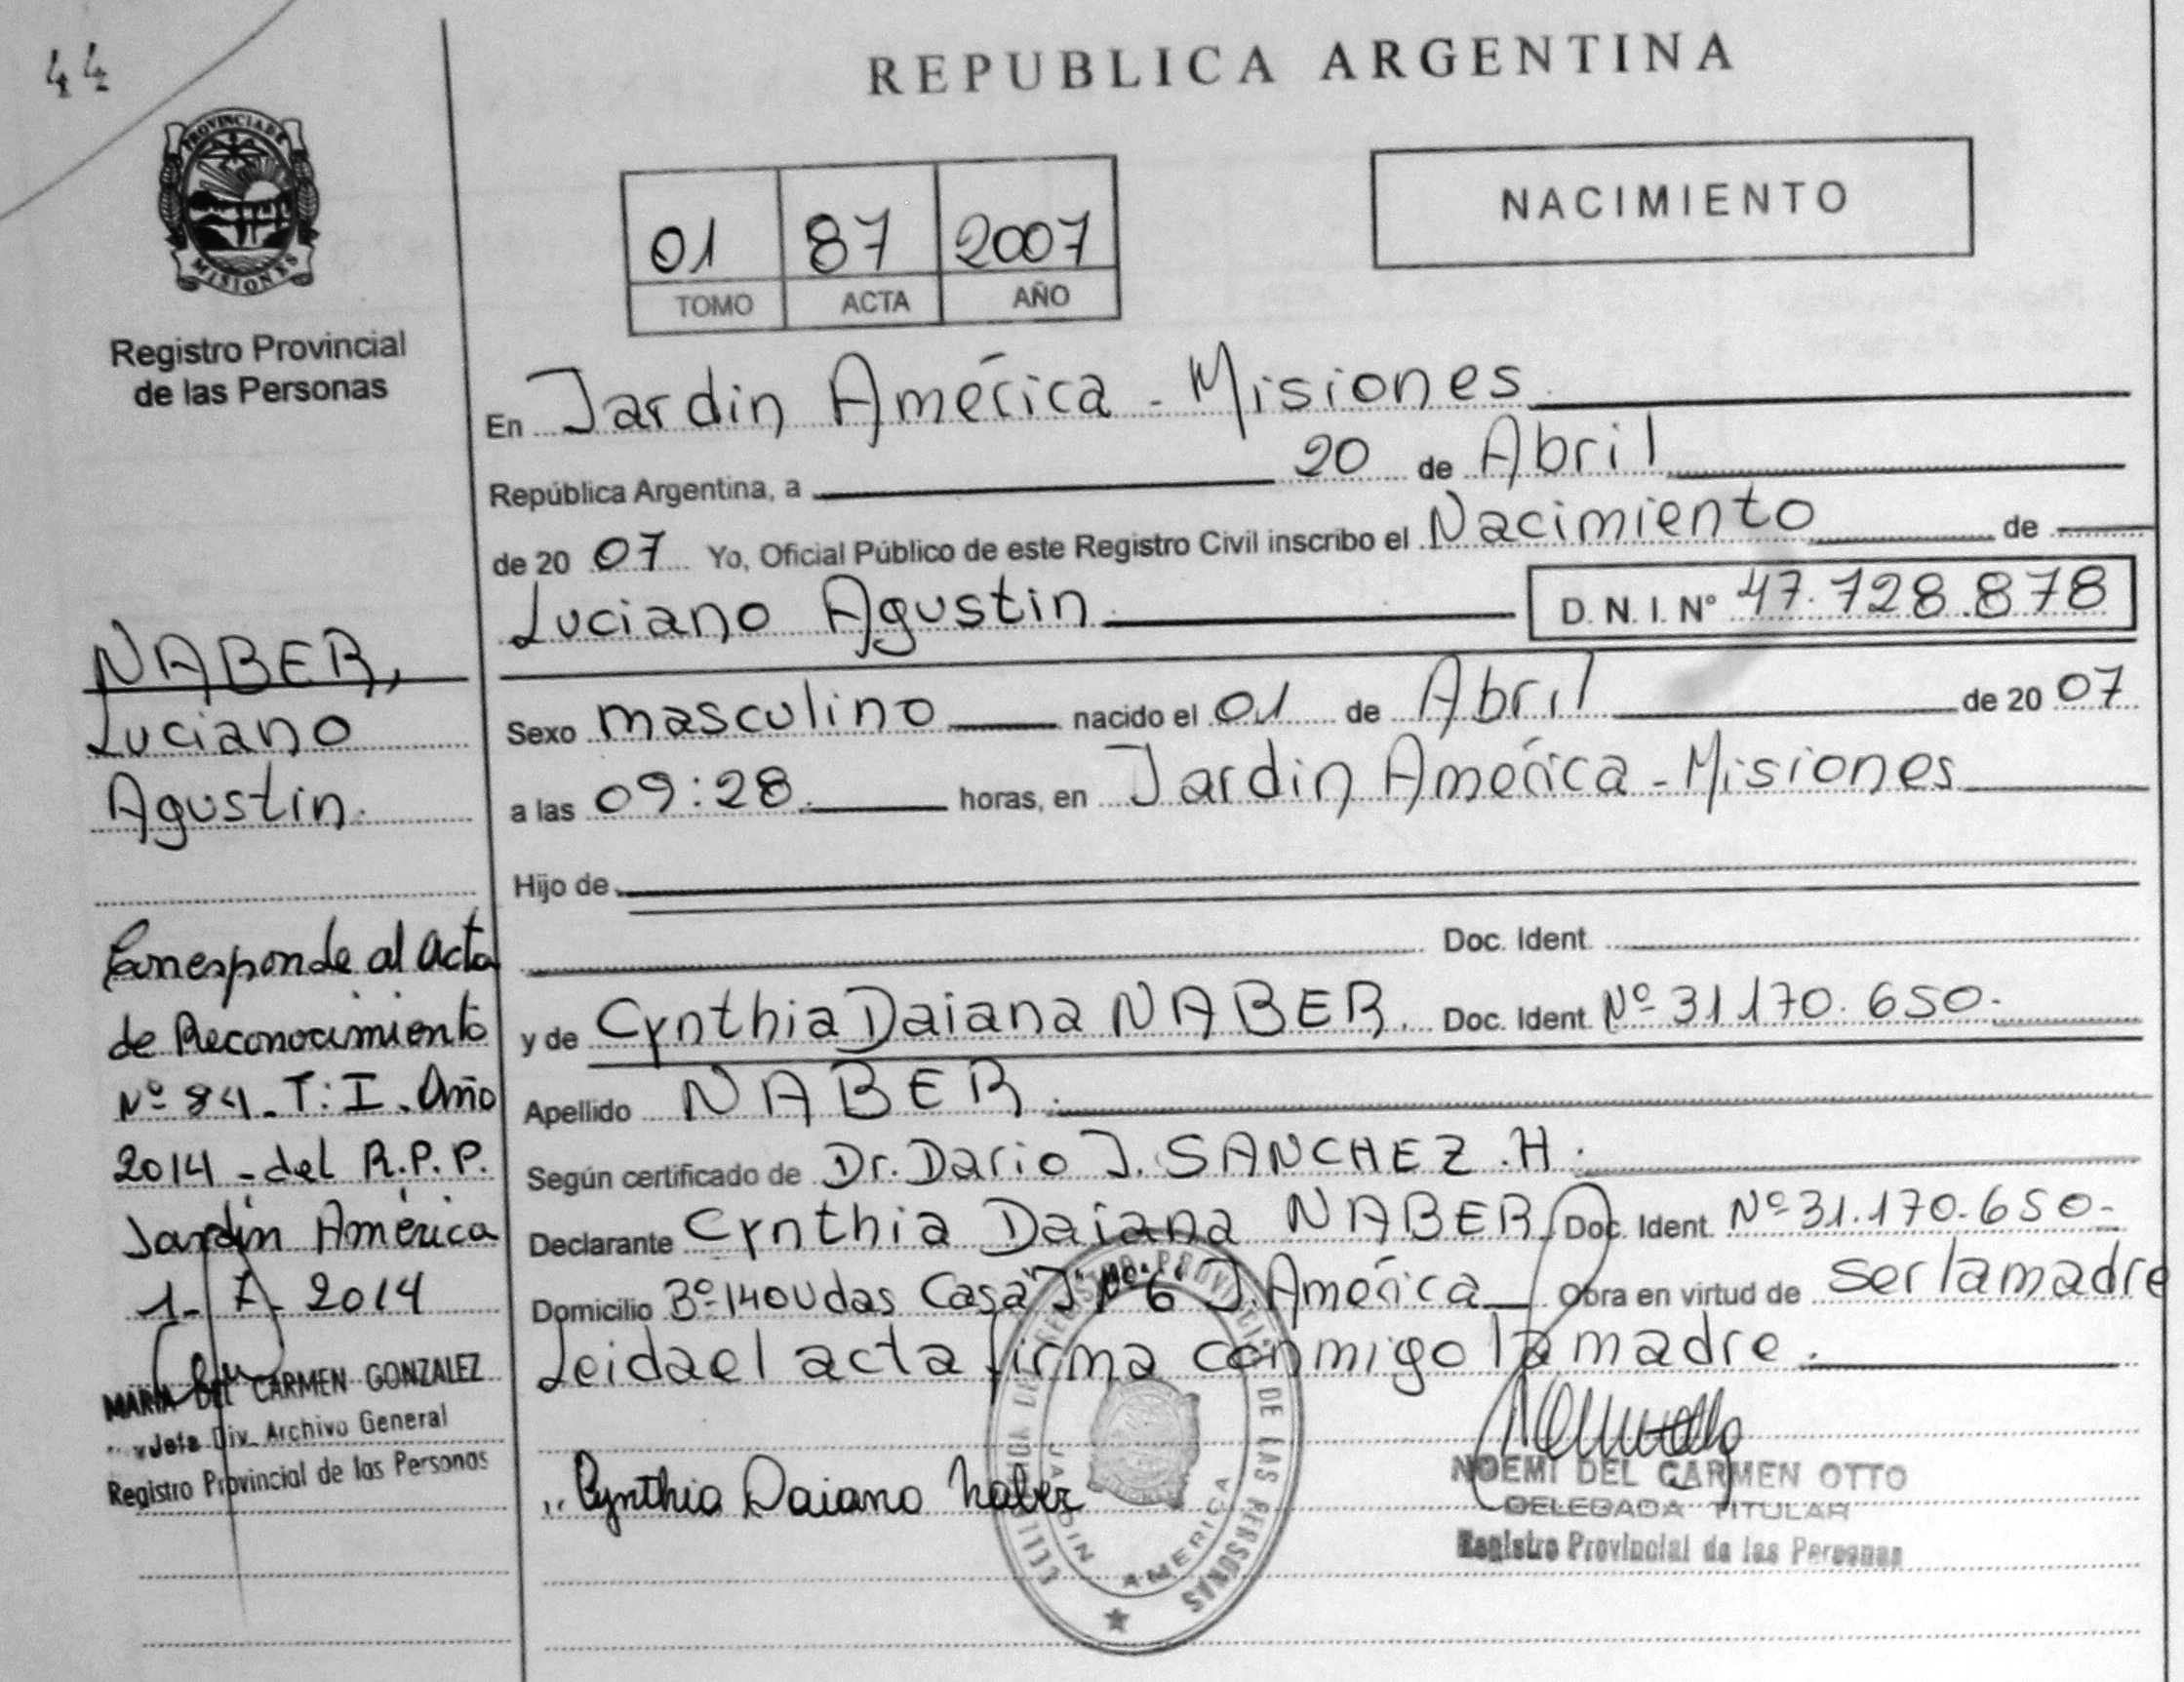 44
REPUBLICA ARGENTINA
PROVINCIA DE
MISIONES
Registro Provincial
de las Personas
01 87 2007
TOMO ACTA AÑO
NACIMIENTO
En Jardin América - Misiones
República Argentina, a 20 de Abril
de 20 07 Yo, Oficial Público de este Registro Civil inscribo el Nacimiento de
Luciano Agustin D. N. I. Nº 47.728.878
Sexo masculino nacido el 01 de Abril de 20 07
a las 09:28. horas, en Jardin América - Misiones
Hijo de
Doc. Ident.
y de Cynthia Daiana NABER. Doc. Ident. Nº 31170.650-
Apellido NABER.
Según certificado de Dr. Dario J. SANCHEZ.H.
Declarante Cynthia Daiana NABER Doc. Ident. Nº 31.170.650-
Domicilio Bº 140 Vdas Casa "J" Nº 6 J. América Obra en virtud de ser la madre
Leida el acta firma conmigo la madre.
Cynthia Daiana Naber
NOEMI DEL CARMEN OTTO
DELEGADA TITULAR
Registro Provincial de las Personas
REGISTRO PROVINCIAL DE LAS PERSONAS
JARDIN AMERICA
NABER,
Luciano
Agustin.
Corresponde al Acta
de Reconocimiento
Nº 84 - T: I. Año
2014 - del R.P.P.
Jardín América
1- 7- 2014
MARIA DEL CARMEN GONZALEZ
Jefa Div. Archivo General
Registro Provincial de las Personas